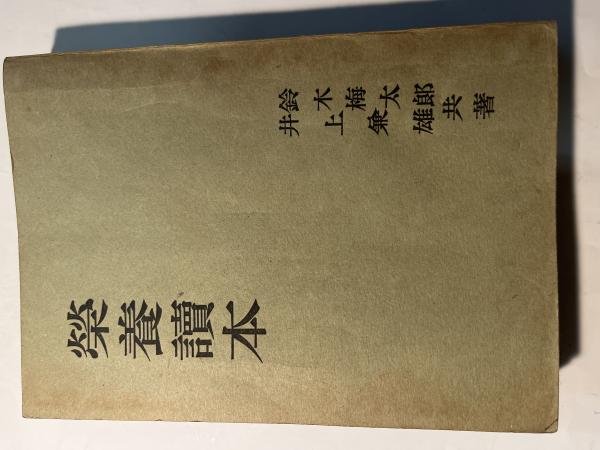 鈴木梅太郎
井上兼雄
共著
榮養讀本